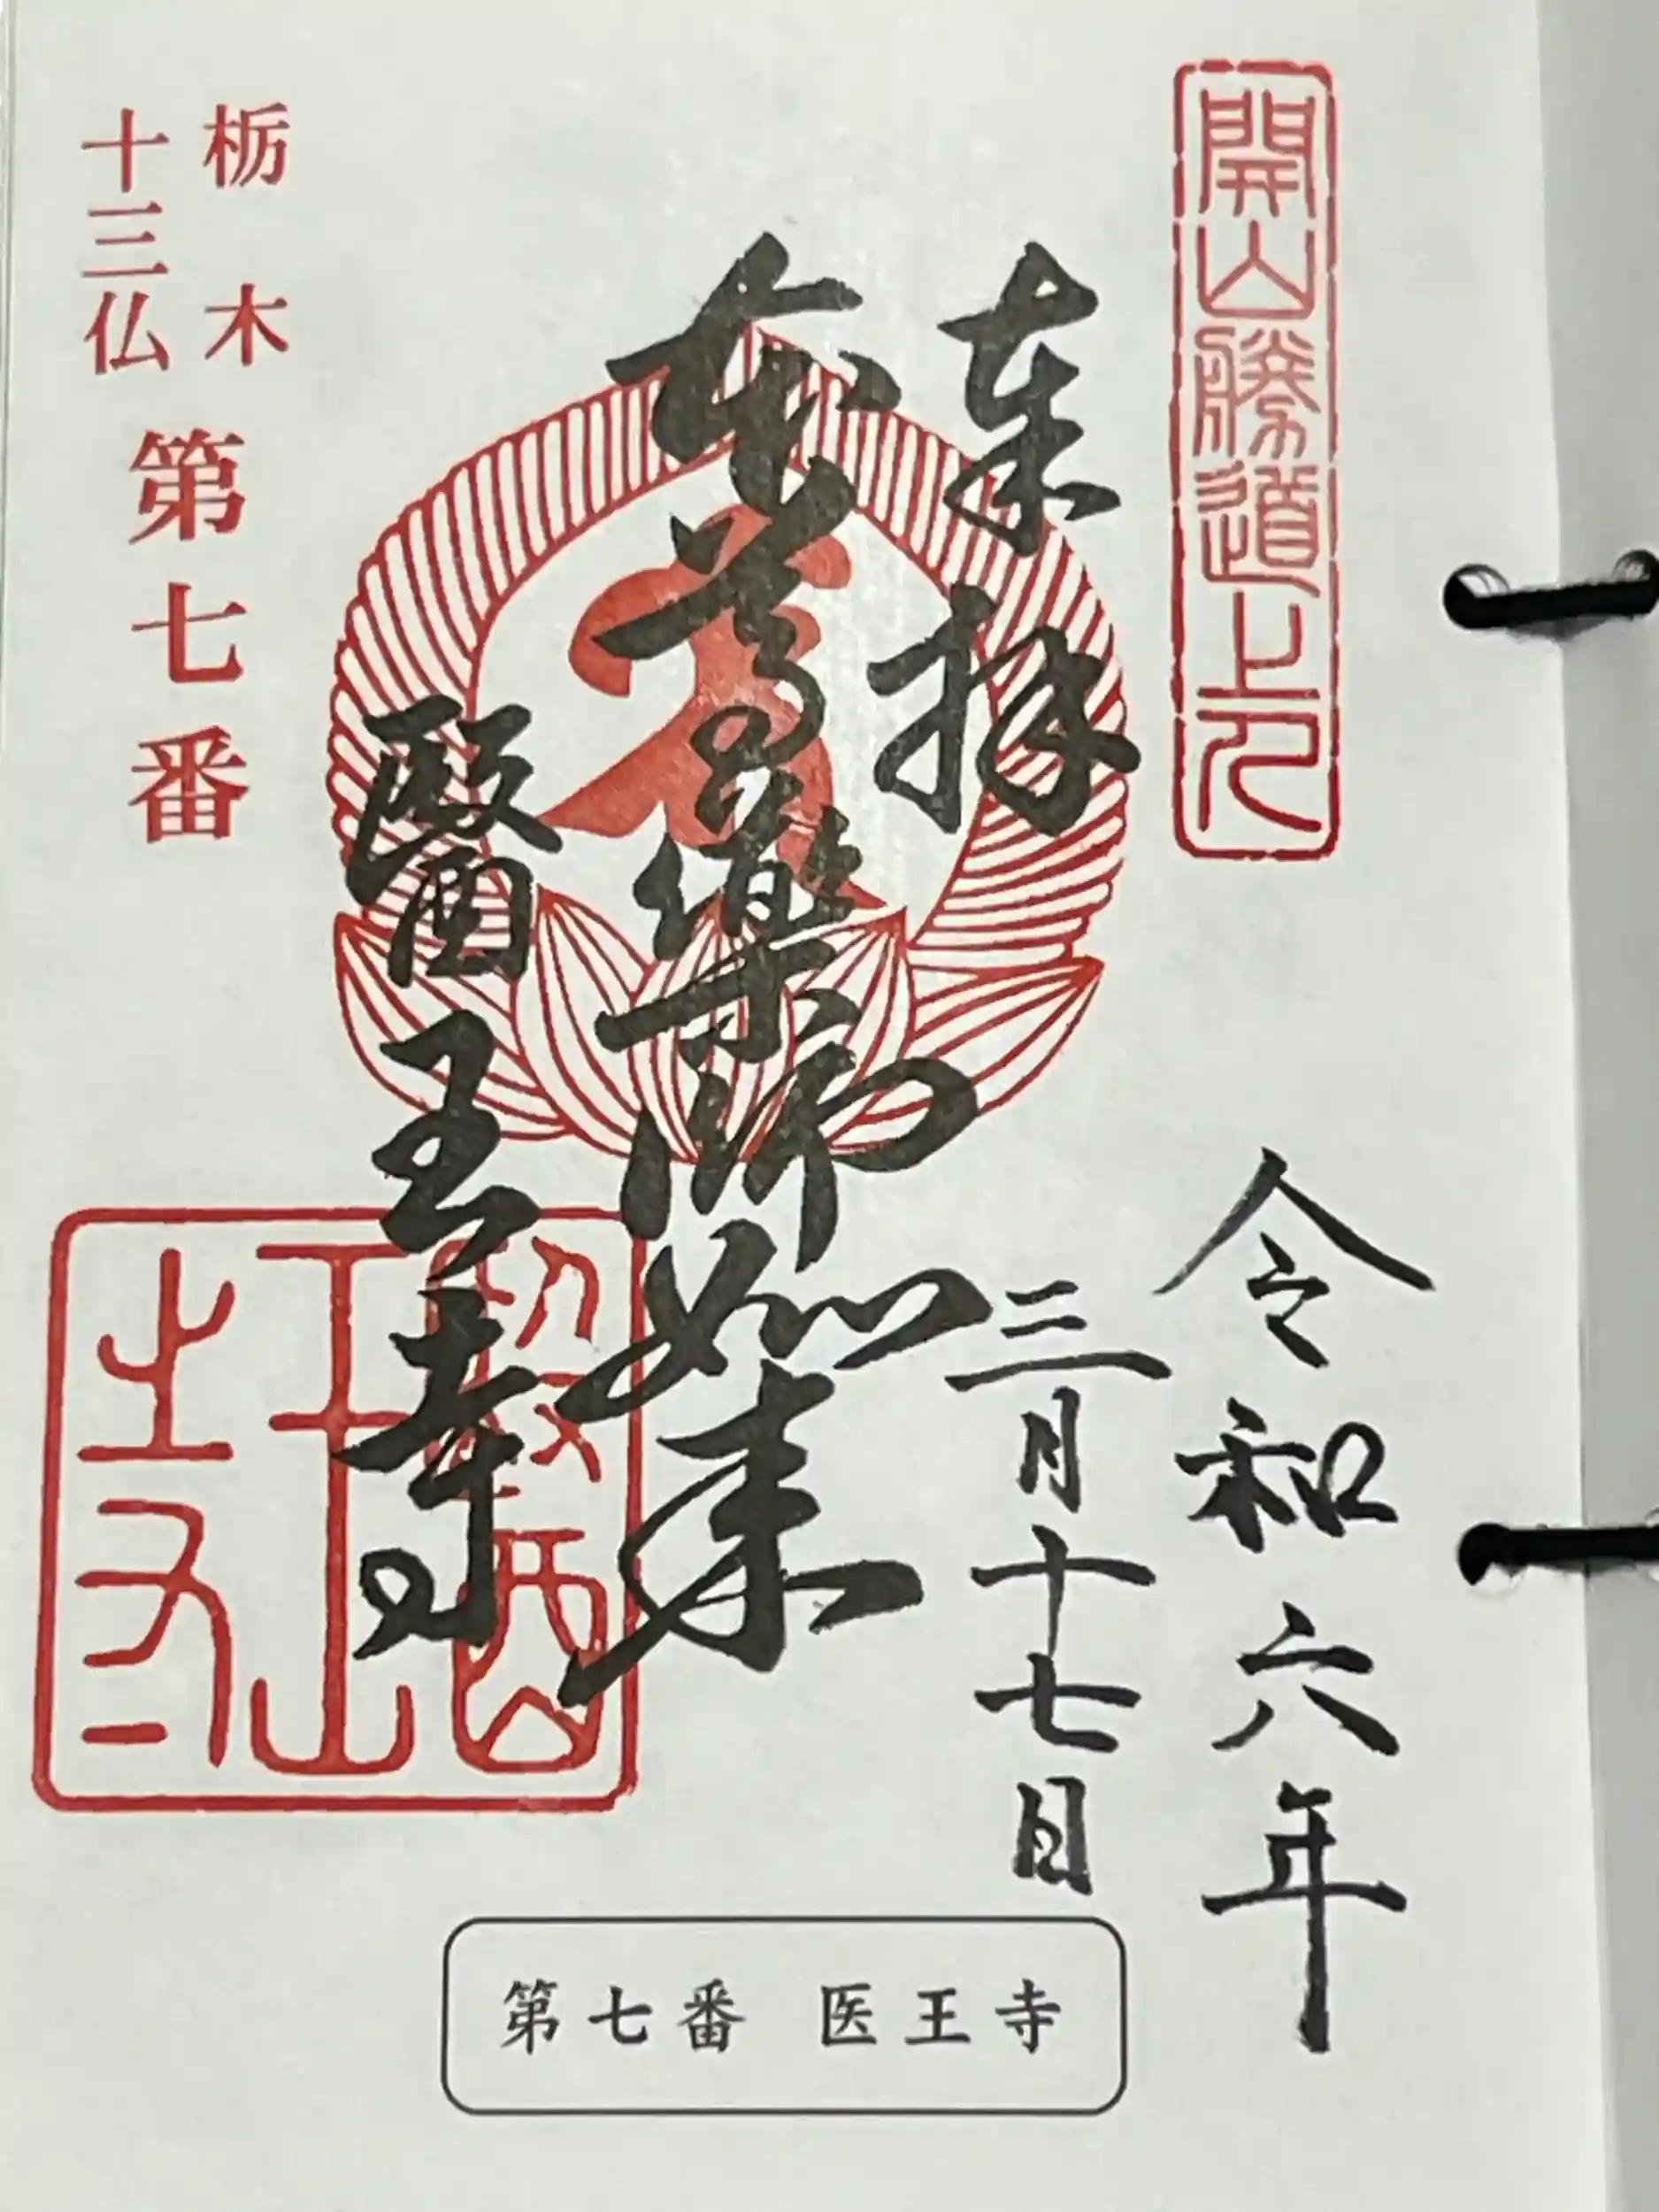 開山勝道上人
令和六年
三月十七日
奉拝
本尊薬師如来
醫王寺
醫王山寺
栃木
十三仏
第七番
第七番 医王寺